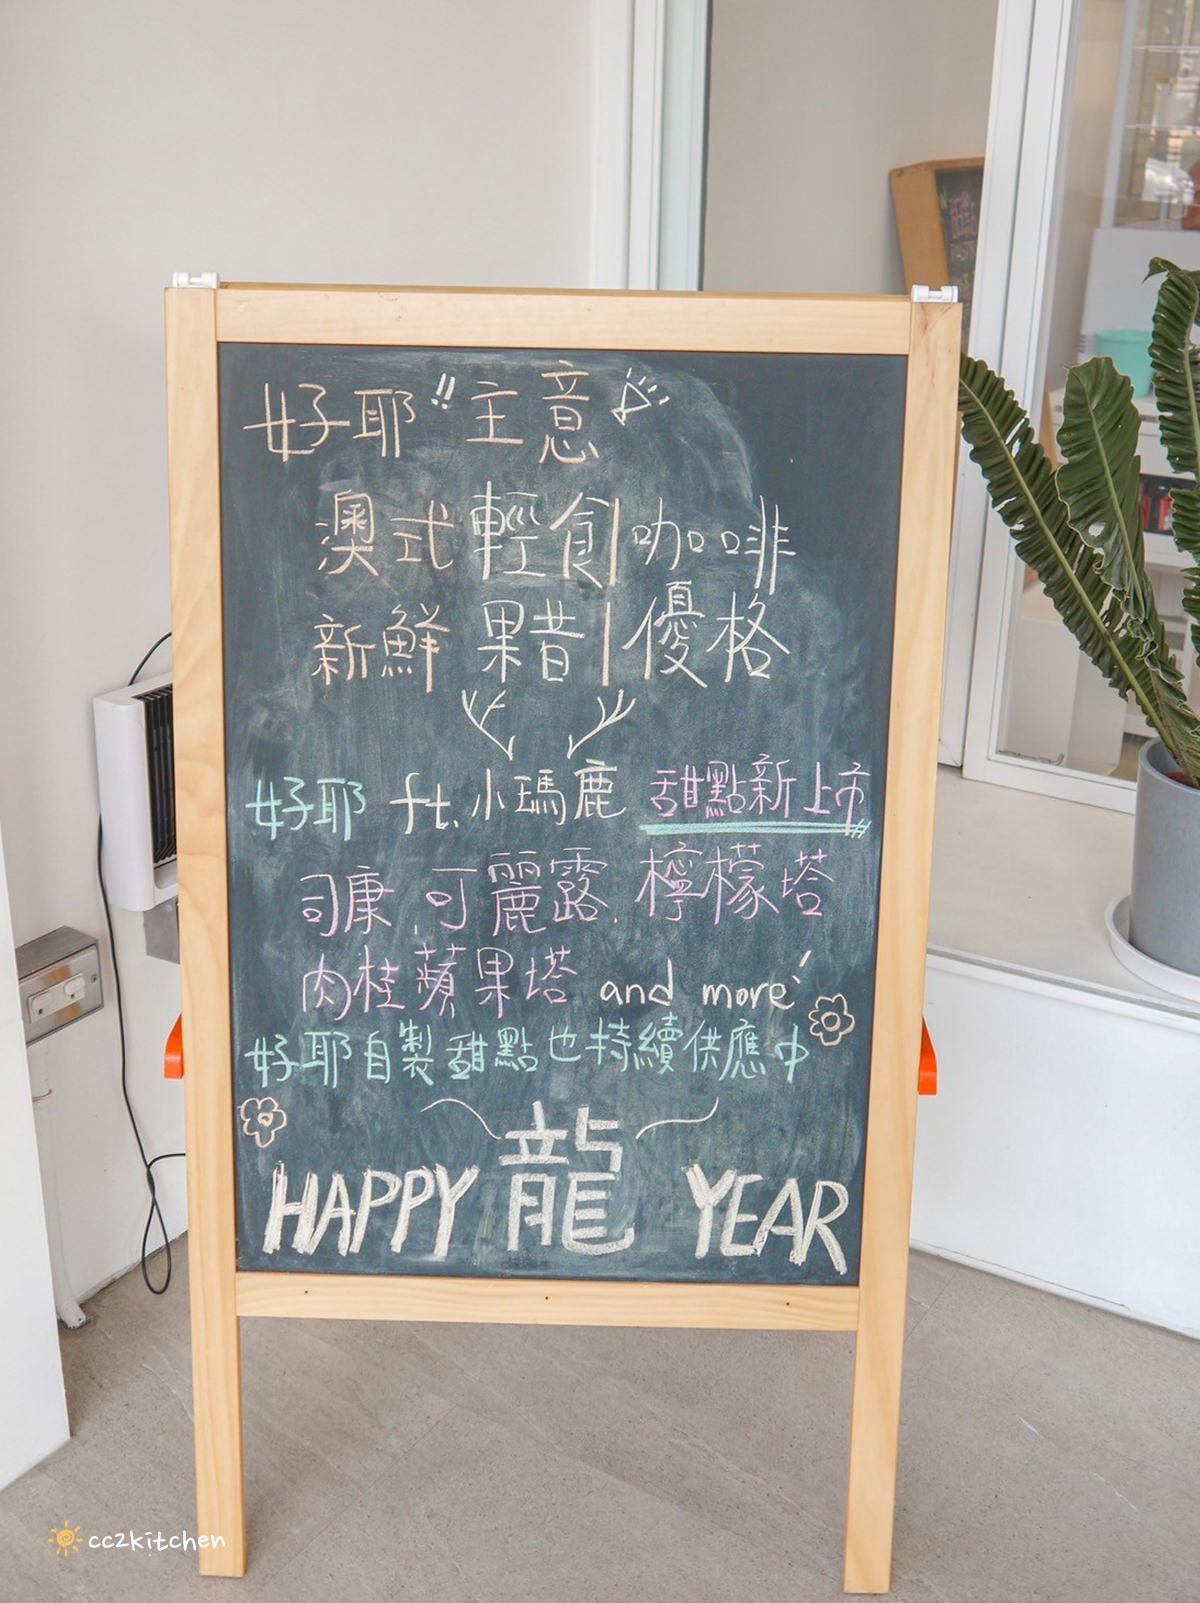 好耶!! 主意
澳式輕食|咖啡
新鮮果昔|優格
好耶 ft. 小瑪鹿 甜點新上市
司康.可麗露.檸檬塔
肉桂蘋果塔 and more
好耶自製甜點也持續供應中
HAPPY 龍 YEAR
cc2kitchen